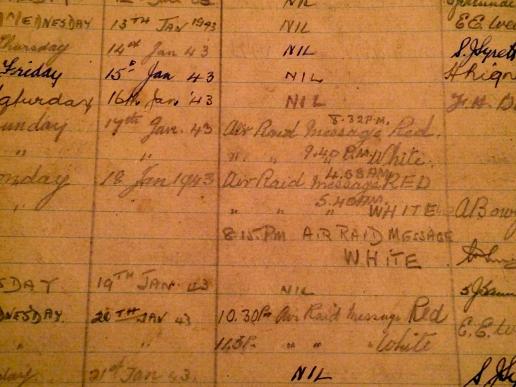 NIL
WEDNESDAY 13TH JAN 1943 NIL E.E.
Thursday 14th Jan 43 NIL
Friday 15th Jan 43 NIL
aturday 16th Jan. 43 NIL
unday 17th Jan. 43 Air Raid Message 8.32 P.M. Red.
" " " " 9.40 P.M. White.
onday 18 Jan 1943 Air Raid Message 4.38 AM RED
" " " " 5.40 AM. WHITE A Bow
8.15. P.M AIR RAID MESSAGE
WHITE
SDAY 19TH JAN. 43 NIL
DNESDAY. 20TH JAN 43 10.30P. Air Raid Message Red E.E.
" " White
day 21st Jan 43. NIL